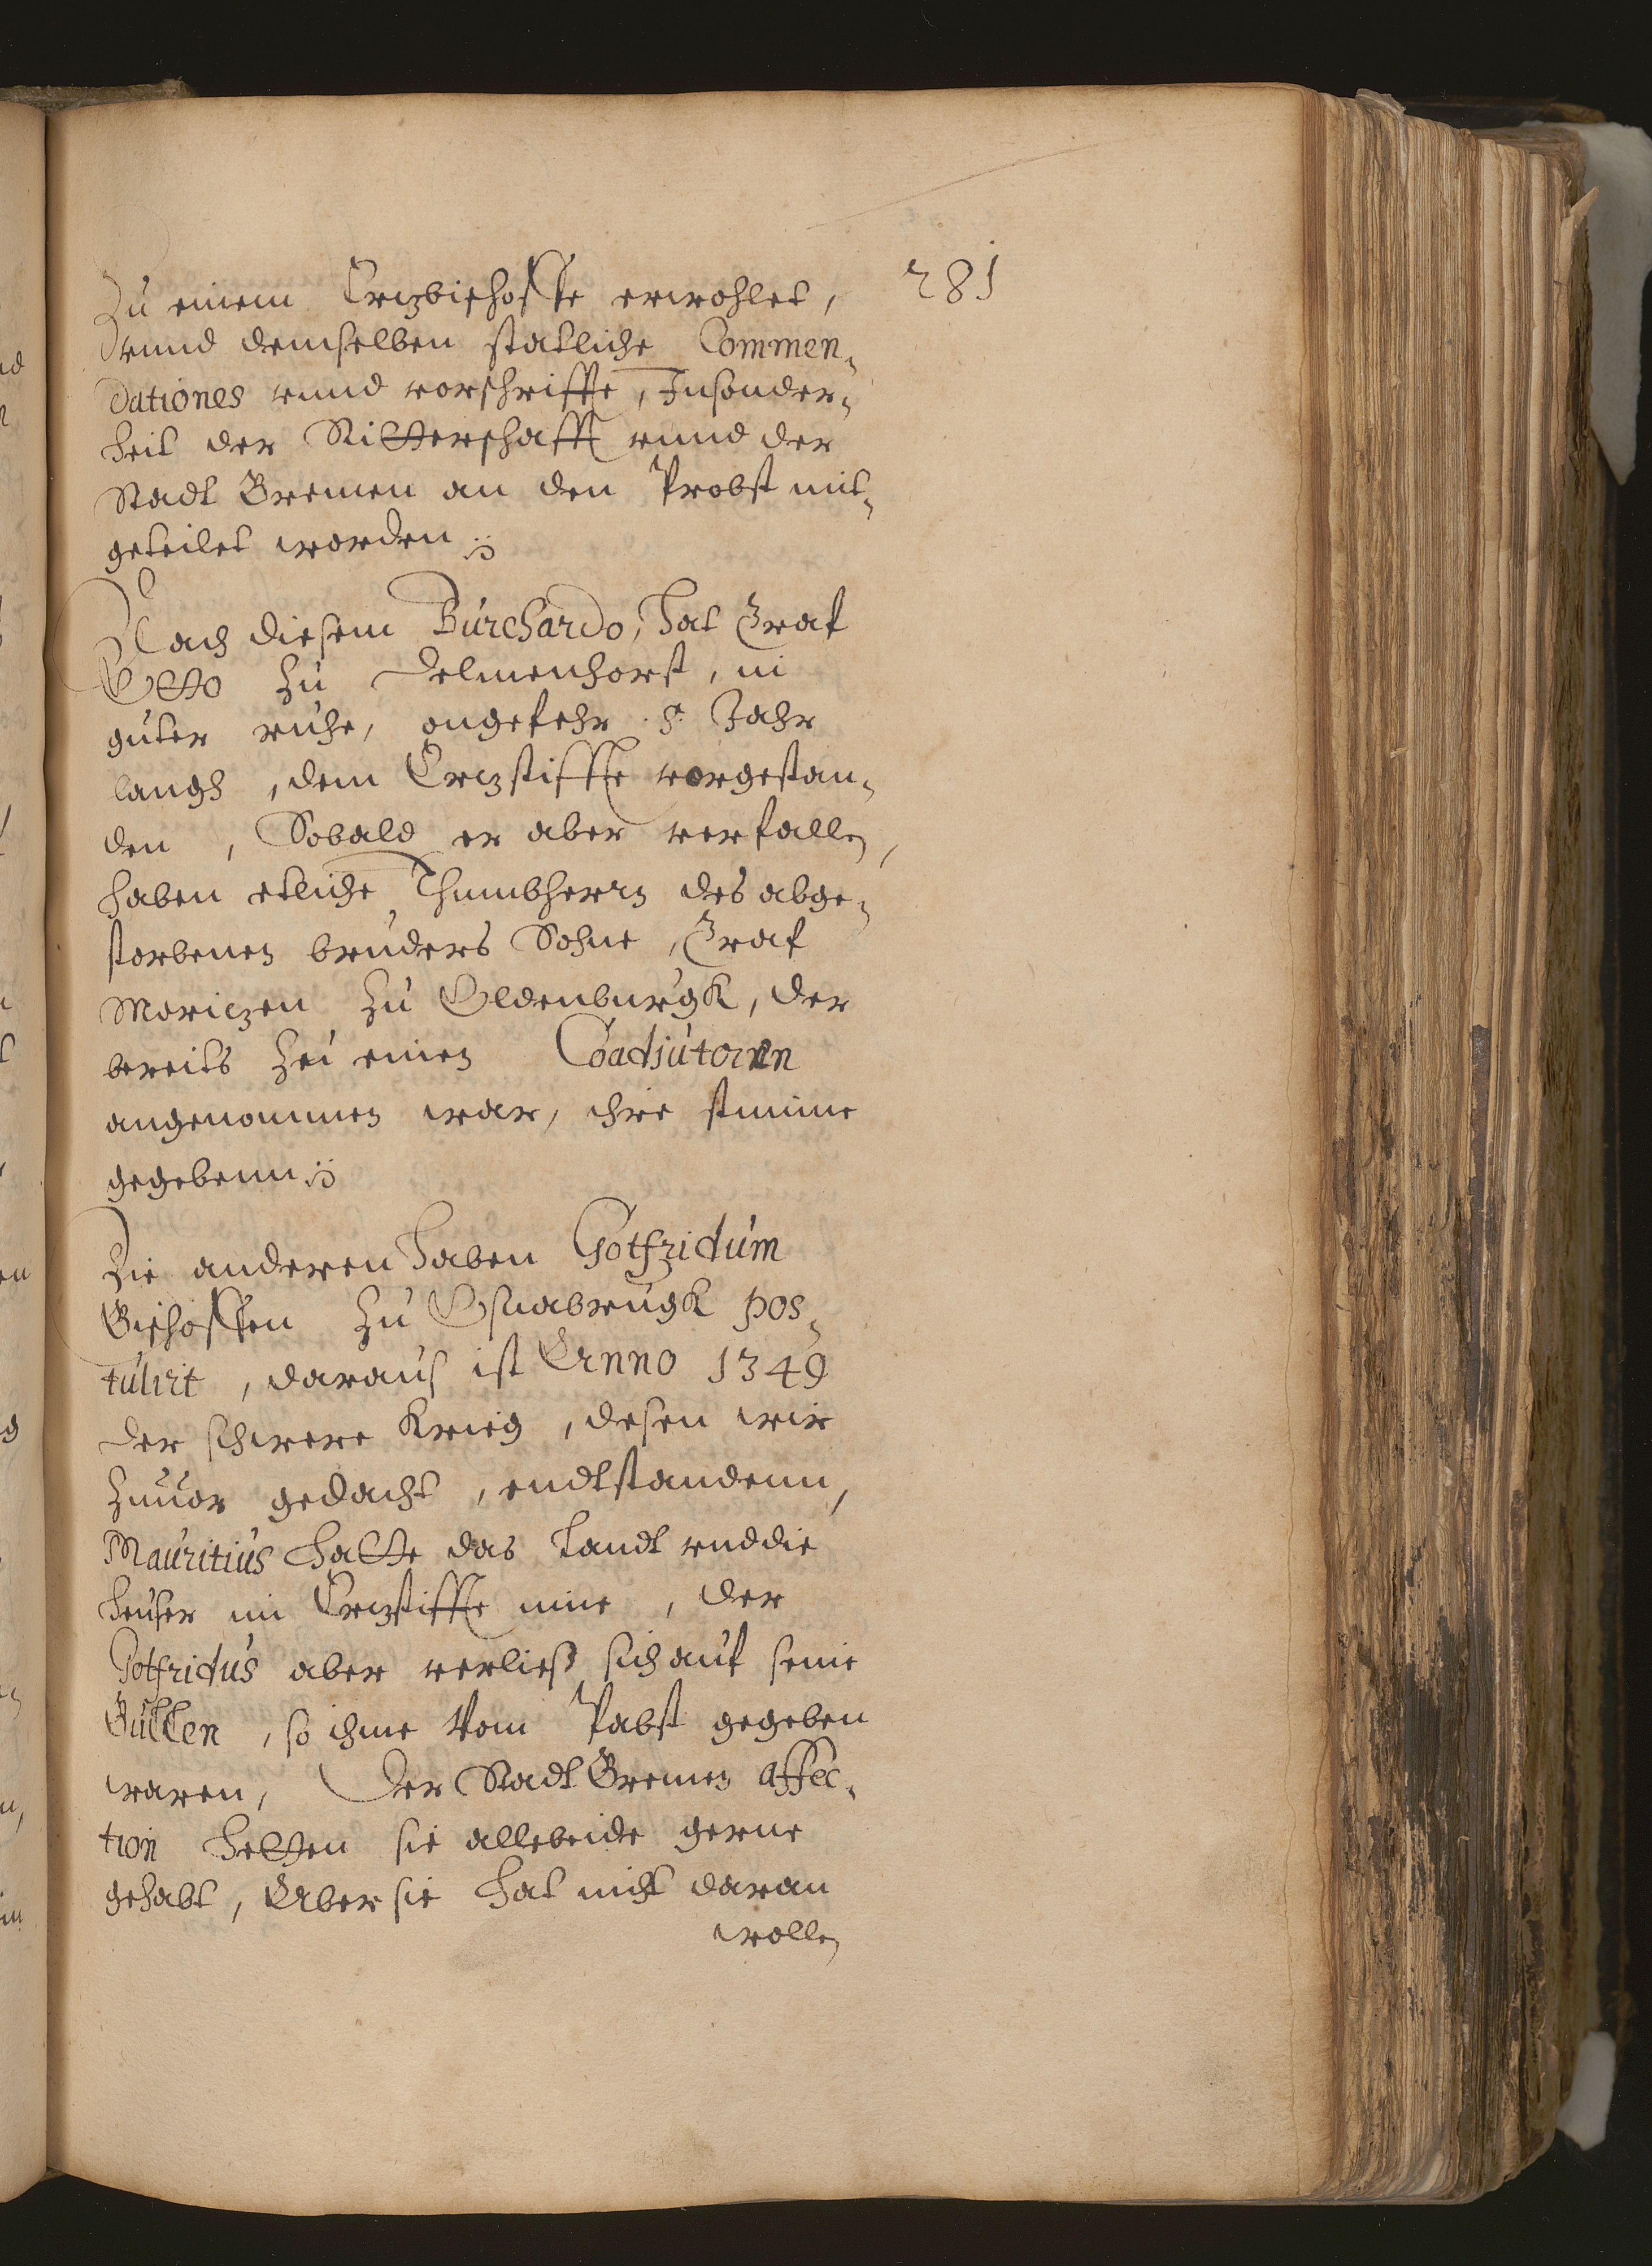 281
Zu einem Ertzbischoffe erwohlet,
vnnd demselben statliche Commen¬
dationes vnnd vorschriffte, Insonder¬
heit der Ritterschafft vnnd der
Stadt Bremen an den Probst mit¬
geteilet worden
Nach diesem Burchardo, hat Graf
Otto zu Delmenhorst, in
guter ruhe, ongefehr .5. Jahr
langh, dem Ertzstiffte vorgestan¬
den, Sobald er aber verfallen,
haben etliche Thumbherrn des abge¬
storbenen bruders Sohne, Graf
Moritzen zu Oldenburgk, der
bereits zu einen Coadiutorn
angenommen war, ihre stimme
gegebenn
Die anderen haben Gotfridum
Bischoffen zu Osnabrugk pos¬
tulirt, daraus ist Anno 1349
der schwere Krieg, desen wir
zuuor gedacht, endtstandenn,
Mauritius hatte das Landt vnd die
heuser im Ertzstiffte inne, der
Gotfridus aber verließ sich auf seine
Bullen, so ihme Vom Pabst gegeben
waren, Der Stadt Bremen affec¬
tion hetten sie allebeide gerne
gehabt, Aber sie hat nicht daran
wollen